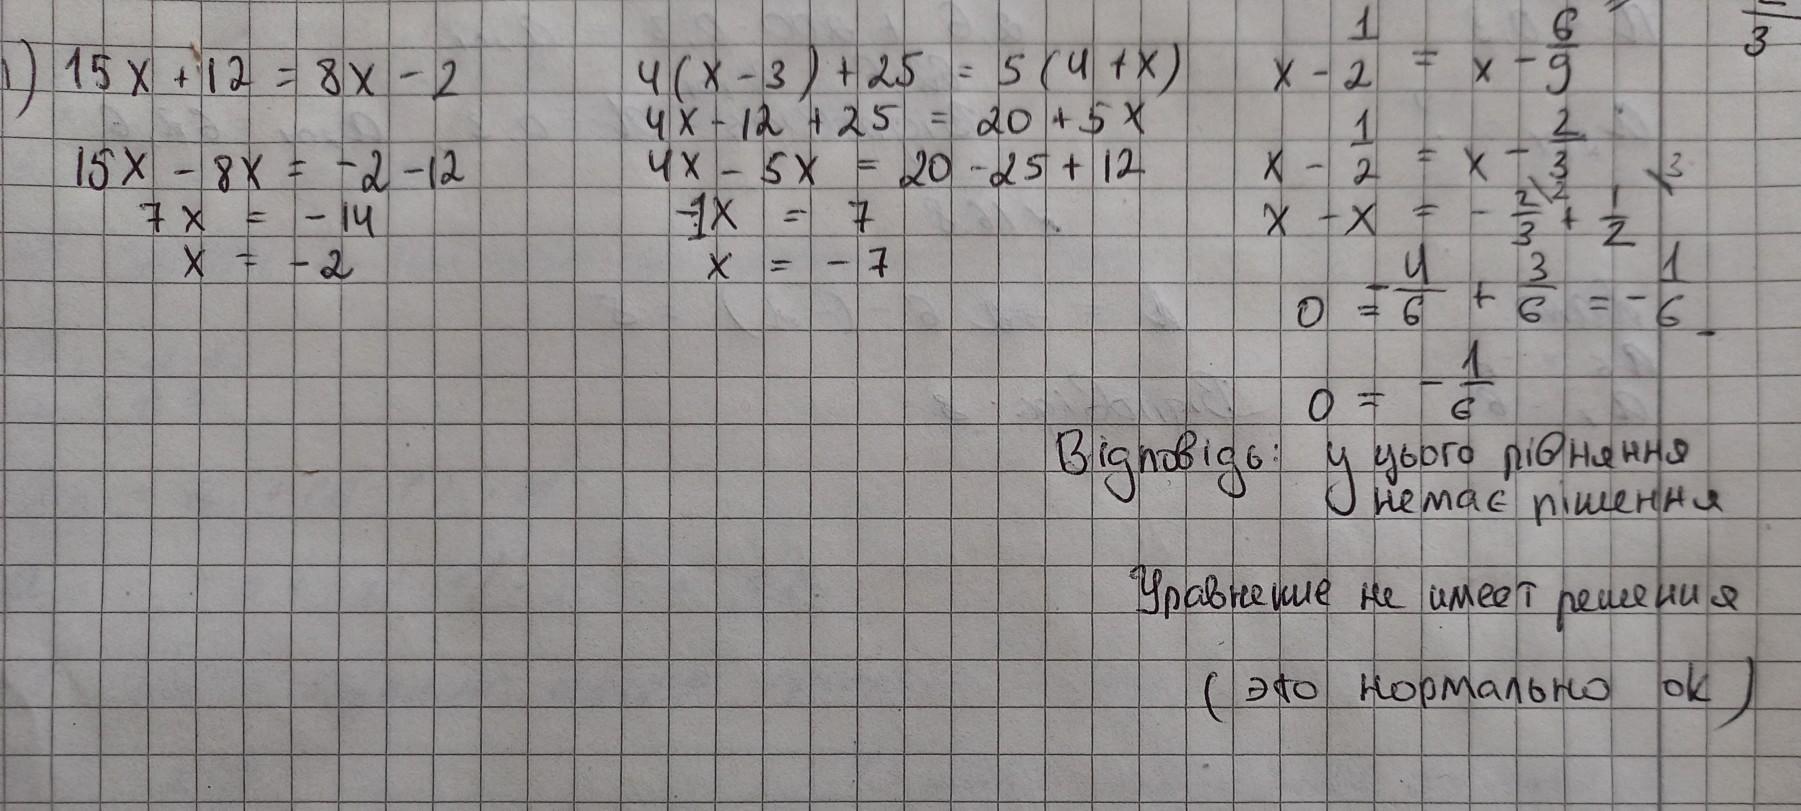 1) 15x + 12 = 8x - 2
15x - 8x = -2 - 12
7x = -14
x = -2
4(x - 3) + 25 = 5(4 + x)
4x - 12 + 25 = 20 + 5x
4x - 5x = 20 - 25 + 12
-1x = 7
x = -7
x - 1/2 = x - 6/9
x - 1/2 = x - 2/3
x - x = - 2/3 \2 + 1/2 \3
0 = - 4/6 + 3/6 = - 1/6
0 = - 1/6
Відповідь: у цього рівняння
немає рішення
Уравнение не имеет решения
(это нормально ок)
3